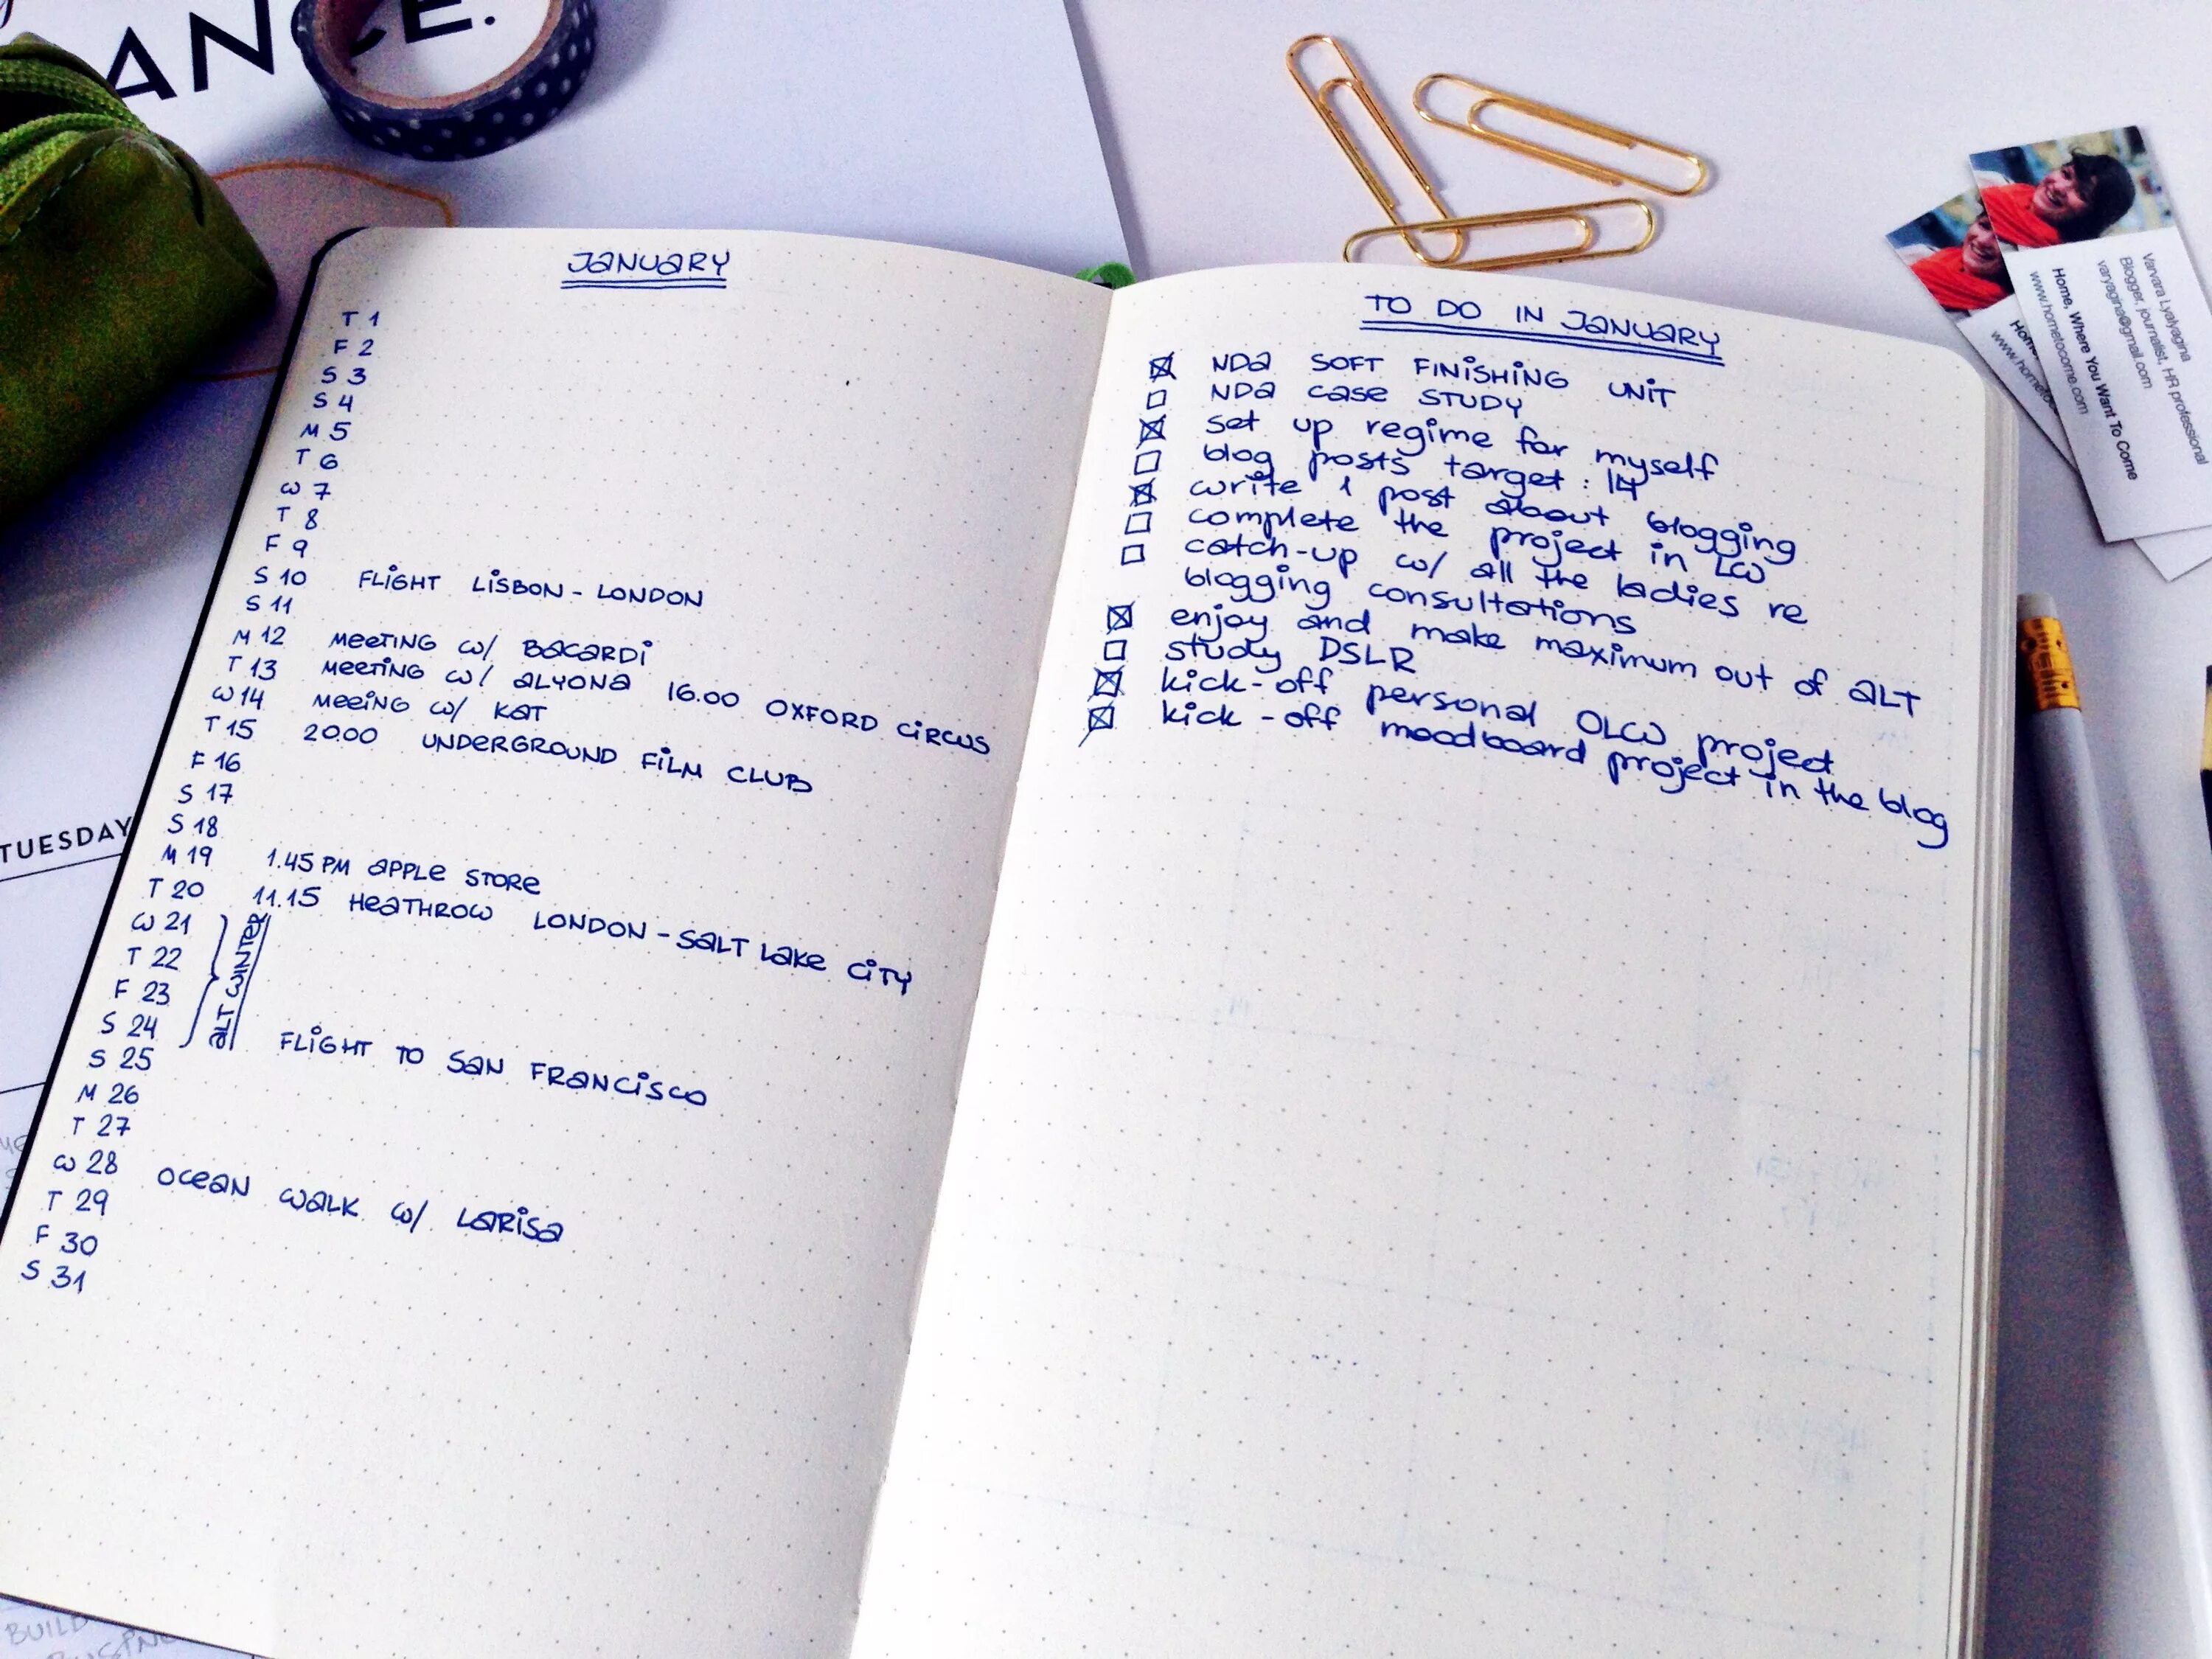 ANCE.
JANUARY
T 1
F 2
S 3
S 4
M 5
T 6
W 7
T 8
F 9
S 10 FLIGHT LISBON - LONDON
S 11
M 12 MEETING W/ BACARDI
T 13 MEETING W/ ALYONA 16.00 OXFORD CIRCUS
W 14 MEEING W/ KAT
T 15 20.00 UNDERGROUND FILM CLUB
F 16
S 17
S 18
M 19 1.45 PM APPLE STORE
T 20 11.15 HEATHROW LONDON - SALT LAKE CITY
W 21
T 22
F 23
S 24
ALT WINTER
S 25 FLIGHT TO SAN FRANCISCO
M 26
T 27
W 28 OCEAN WALK W/ LARISA
T 29
F 30
S 31
TO DO IN JANUARY
NDA SOFT FINISHING UNIT
NDA CASE STUDY
set up regime for myself
blog posts target : 14
write 1 post about blogging
complete the project in LW
catch-up w/ all the ladies re
blogging consultations
enjoy and make maximum out of ALT
study DSLR
kick-off personal OLW project
kick-off moodboard project in the blog
Varvara Lyalyagina
Blogger, journalist, HR professional
varyagina@gmail.com
Home, Where You Want To Come
www.hometocome.com
TUESDAY
BUILD